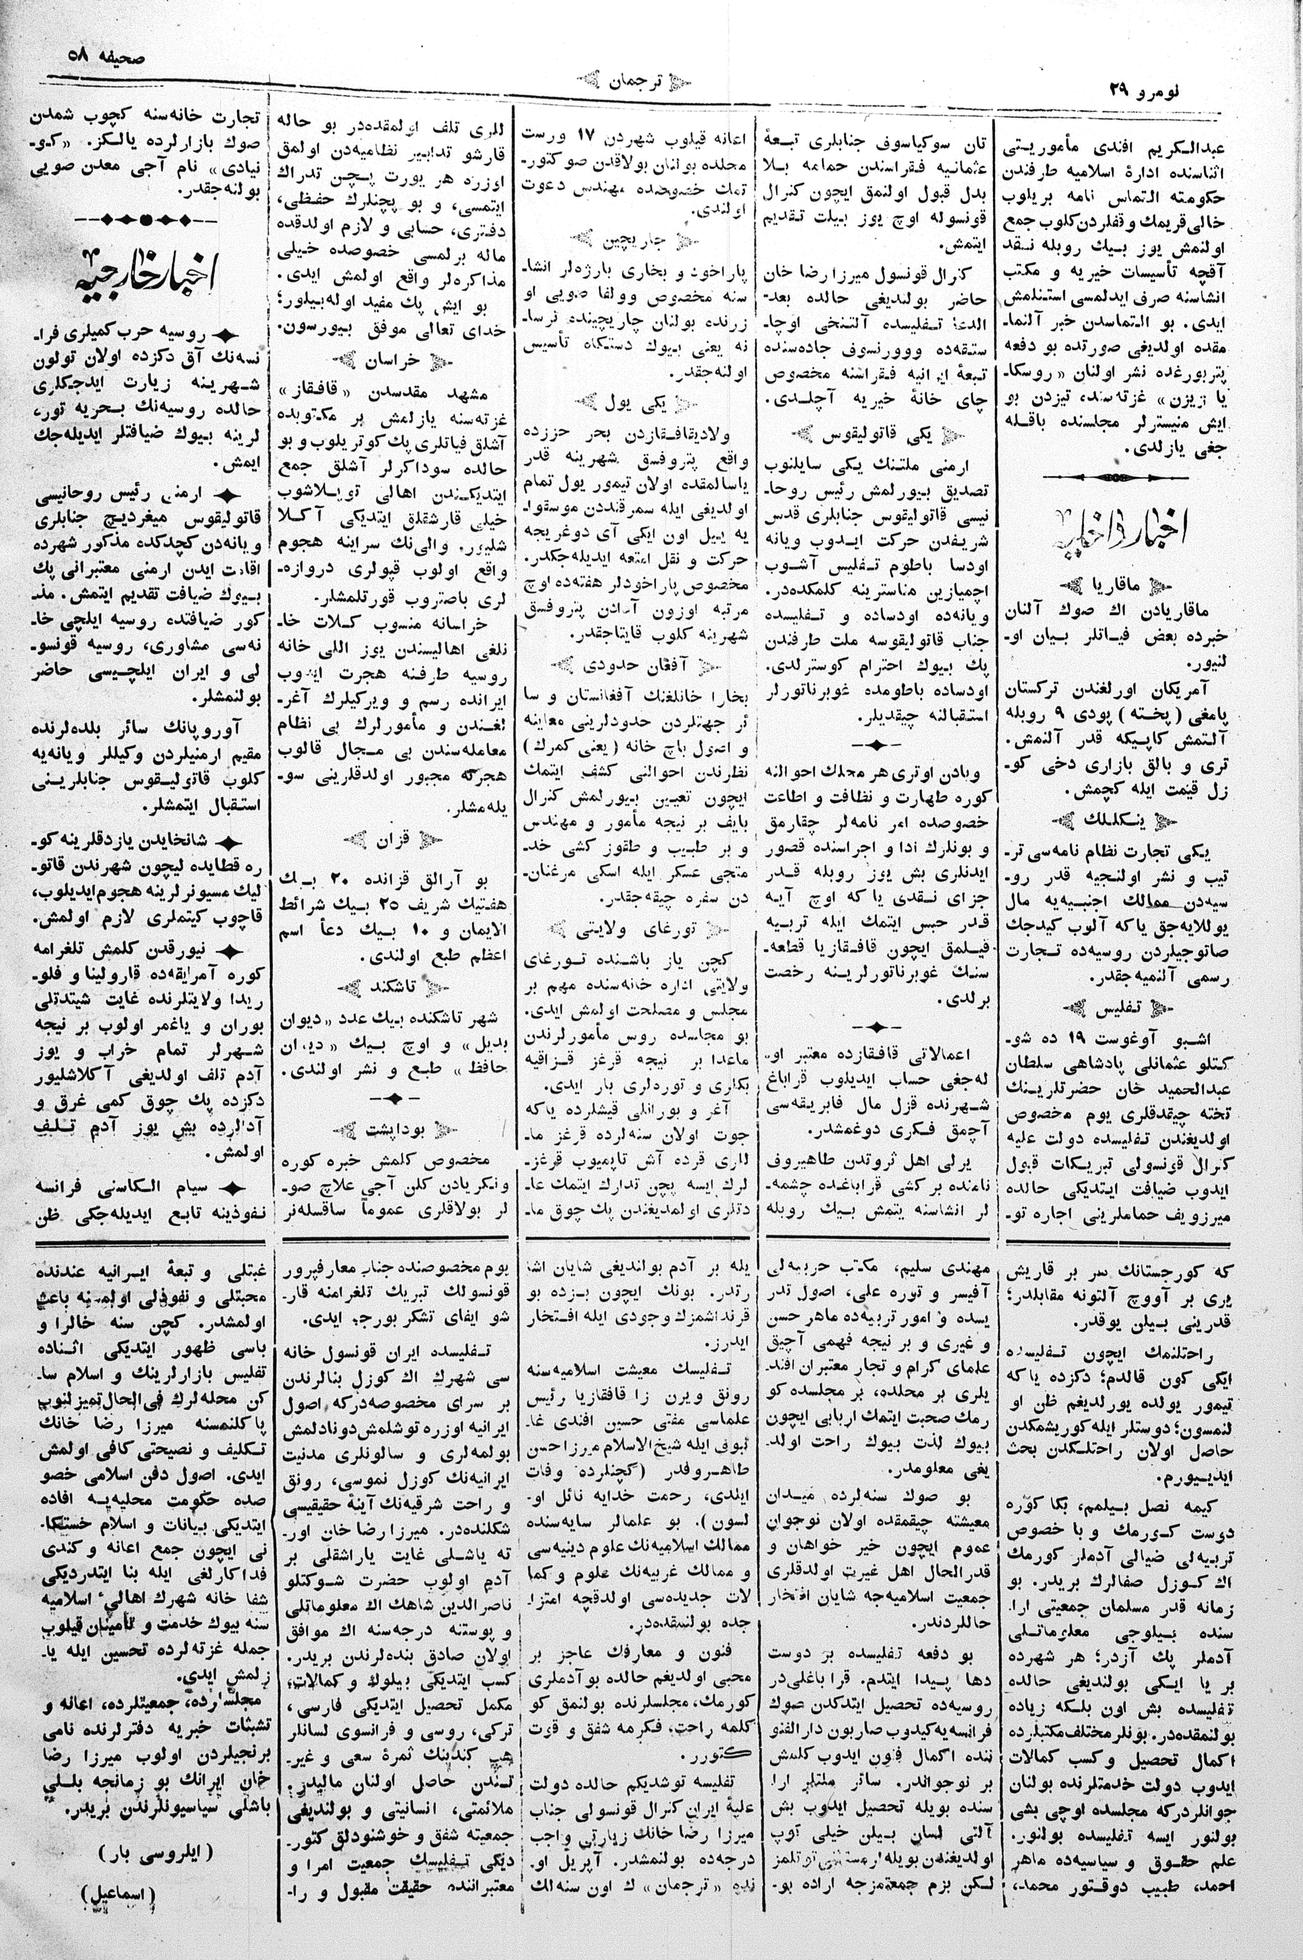 نومرو ٢٩
ترجمان
صحیفه ٥٨
عبدالکریم افندی مأموریتی
اثناسنده ادارۀ اسلامیه طرفندن
حکومته التماس نامه بریلوب
خالی قریمك وقفلردن کلوب جمع
اولنمش یوز بیك روبله نقد
آقچه تأسیسات خیریه و مکتب
انشاسنه صرف ایدلمسی استنلمش
ایدی. بو التماسدن خبر آلنما-
مقده اولدیغی صورتده بو دفعه
پتربورغده نشر اولنان «روسکا-
یا ژیزن» غزته‌سنه، تیزدن بو
ایش منیسترلر مجلسنده باقله
جغی یازلدی.
اخبار داخلیه
ماقاریا
ماقاریادن اك صوك آلنان
خبرده بعض فیاتلر بیان او-
لنیور.
آمریکان اورلغندن ترکستان
پامغی (پخته) پودی ٩ روبله
آلتمش کاپیکه قدر آلنمش.
تری و بالق بازاری دخی کو-
زل قیمت ایله کچمش.
ینکلك
یکی تجارت نظام نامه‌سی تر-
تیب و نشر اولنجیه قدر رو-
سیه‌دن ممالك اجنبیه‌یه مال
یوللایه‌جق یا که آلوب کیدجك
صاتوجیلردن روسیه‌ده تجارت
رسمی آلنمیه‌جقدر.
تفلیس
اشبو آوغوست ١٩ ده شو-
کتلو عثمانلی پادشاهی سلطان
عبدالحمید خان حضرتلرینك
تخته چیقدقلری یوم مخصوص
اولدیغندن تفلیسده دولت علیه
کنرال قونسولی تبریکات قبول
ایدوب ضیافت ایتدیکی حالده
میرزویف حماملرینی اجاره تو-
تان سوکیاسوف جنابلری تبعۀ
عثمانیه فقراسندن حمامه بلا
بدل قبول اولنمق ایچون کنرال
قونسوله اوچ یوز بیلت تقدیم
ایتمش.
کنرال قونسول میرزا رضا خان
حاضر بولندیغی حالده بعد-
الدعا تفلیسده آلتنخی اوجا-
ستقه‌ده وورنسوف جاده‌سنده
تبعۀ ایرانیه فقراسنه مخصوص
چای خانۀ خیریه آچلدی.
یکی قاتولیقوس
ارمنی ملتنك یکی سایلنوب
تصدیق بیورلمش رئیس روحا-
نیسی قاتولیقوس جنابلری قدس
شریفدن حرکت ایدوب ویانه
اودسا باطوم تفلیس آشوب
اچمیازین مناسترینه کلمکده‌در.
ویانه‌ده اودساده و تفلیسده
جناب قاتولیقوسه ملت طرفندن
پك بیوك احترام کوسترلدی.
اودساده باطومده غوبرناتورلر
استقبالنه چیقدیلر.
وبادن اوتری هر محلك احوالنه
کوره طهارت و نظافت و اطاعت
خصوصده امر نامه‌لر چقارمق
و بونلرك ادا و اجراسنده قصور
ایدنلری بش یوز روبله قدر
جزای نقدی یا که اوچ آیه
قدر حبس ایتمك ایله تربیه
قیلمق ایچون قافقازیا قطعه-
سنك غوبرناتورلرینه رخصت
برلدی.
اعمالاتی قافقازده معتبر او-
له‌جغی حساب ایدیلوب قراباغ
شهرنده قزل مال فابریقه‌سی
آچمق فکری دوغمشدر.
یرلی اهل ثروتدن طاهیروف
نامنده بر کشی قراباغده چشمه-
لر انشاسنه یتمش بیك روبله
اعانه قیلوب شهردن ١٧ ورست
محلده بولنان بولاقدن صو کتور-
تمك خصوصده مهندس دعوت
اولندی.
جاریچین
پاراخود و بخاری بارژه‌لر انشا-
سنه مخصوص وولغا صویی او-
زرنده بولنان چاریچینده ترسا-
نه یعنی بیوك دستکاه تأسیس
اولنه‌جقدر.
یکی یول
ولادیقافقازدن بحر حزرده
واقع پتروفسق شهرینه قدر
یاسالمقده اولان تیمور یول تمام
اولدیغی ایله سمرقنددن موسقوا-
یه ییل اون ایکی آی دوغریجه
حرکت و نقل امتعه ایدیله‌جکدر.
مخصوص پاراخودلر هفته‌ده اوچ
مرتبه اوزون آدادن پتروفسق
شهرینه کلوب قایتاجقدر.
آفغان حدودی
بخارا خانلغنك آفغانستان و سا-
ئر جهتلردن حدودلرینی معاینه
و اصول باج خانه (یعنی کمرك)
نظرندن احوالنی کشف ایتمك
ایچون تعیین بیورلمش کنرال
بایف بر نیجه مأمور و مهندس
و بر طبیب و طقوز کشی خد-
متجی عسکر ایله اسکی مرغنان-
دن سفره چیقه‌جقدر.
تورغای ولایتی
کچن یاز باشنده تورغای
ولایتی اداره خانه‌سنده مهم بر
مجلس و مصلحت اولمش ایدی.
بو مجلسده روس مأمورلرندن
ماعدا بر نیجه قرغز قزاقیه
بکلری و توره‌لری بار ایدی.
آغر و بورانلی قیشلرده یا که
جوت اولان سنه‌لرده قرغز ما-
للری قرده آش تاپمیوب قرغز-
لرك ایسه پچن تدارك ایتمك عا-
دتلری اولمدیغندن پك چوق ما-
للری تلف اولمقده‌در بو حاله
قارشو تدابیر نظامیه‌دن اولمق
اوزره هر یورت پچن تدراك
ایتمسی، و بو پچنلرك حفظی،
دفتری، حسابی و لازم اولدقده
ماله برلمسی خصوصده خیلی
مذاکره‌لر واقع اولمش ایدی.
بو ایش پك مفید اوله‌بیلور؛
خدای تعالی موفق بیورسون.
خراسان
مشهد مقدسدن «قافقاز»
غزته‌سنه یازلمش بر مکتوبده
آشلق فیاتلری پك کوتریلوب و بو
حالده سوداکرلر آشلق جمع
ایتدیکندن اهالی توپلاشوب
خیلی قارشقلق ایتدیکی آکلا-
شلیور. والی‌نك سراینه هجوم
واقع اولوب قپولری دروازه-
لری باصتروب قورتلمشلر.
خراسانه منسوب کلات خا-
نلغی اهالیسندن یوز اللی خانه
روسیه طرفنه هجرت ایدوب
ایرانده رسم و ویرکیلرك آغر-
لغندن و مأمورلرك بی نظام
معامله‌سندن بی مجال قالوب
هجرته مجبور اولدقلرینی سو-
یله‌مشلر.
قزان
بو آرالق قزانده ٢٠ بیك
هفتیك شریف ٢٥ بیك شرائط
الایمان و ١٠ بیك دعأ اسم
اعظم طبع اولندی.
تاشکند
شهر تاشکنده بیك عدد «دیوان
بدیل» و اوچ بیك «دیوان
حافظ» طبع و نشر اولندی.
بوداپشت
مخصوص کلمش خبره کوره
ونکریادن کلن آجی علاج صو-
لر بولاقلری عموماً ساقسله‌نر
تجارت خانه‌سنه کچوب شمدن
صوك بازارلرده یالکز. «کو-
نیادی» نام آجی معدن صویی
بولنه‌جقدر.
اخبار خارجیه
روسیه حرب کمیلری فرا-
نسه‌نك آق دکزده اولان تولون
شهرینه زیارت ایدجکلری
حالده روسیه‌نك بحریه تور-
لرینه بیوك ضیافتلر ایدیله‌جك
ایمش.
ارمنی رئیس روحانیسی
قاتولیقوس میغردیچ جنابلری
ویانه‌دن کچدکده مذکور شهرده
اقامت ایدن ارمنی معتبرانی پك
بیوك ضیافت تقدیم ایتمش. مذ-
کور ضیافتده روسیه ایلچی خا-
نه‌سی مشاوری، روسیه قونسو-
لی و ایران ایلچیسی حاضر
بولنمشلر.
آوروپانك سائر بلده‌لرنده
مقیم ارمنیلردن وکیللر ویانه‌یه
کلوب قاتولیقوس جنابلرینی
استقبال ایتمشلر.
شانخایدن یازدقلرینه کو-
ره قطایده لیچون شهرندن قاتو-
لیك مسیونرلرینه هجوم ایدیلوب،
قاچوب کیتملری لازم اولمش.
نیورقدن کلمش تلغرامه
کوره آمریقه‌ده قارولینا و فلو-
ریدا ولایتلرنده غایت شیتدتلی
بوران و یاغمر اولوب بر نیجه
شهرلر تمام خراب و یوز
آدم تلف اولدیغی آکلاشلیور
دکزده پك چوق کمی غرق و
آدالرده بش یوز آدم تلف
اولمش.
سیام الکاسنی فرانسه
نفوذینه تابع ایدیله‌جکی ظن
که کورجستانك سر بر قاریش
یری بر آووچ آلتونه مقابلدر؛
قدرینی بیلن یوقدر.
راحتلنمك ایچون تفلیسده
ایکی کون قالدم؛ دکزده یا که
تیمور یولده یورلدیغم ظن او-
لنمسون؛ دوستلر ایله کوریشمکدن
حاصل اولان راحتلکدن بحث
ایدییورم.
کیمه نصل بیلمم، بکا کوره
دوست کورمك و با خصوص
تربیه‌لی ضیالی آدملر کورمك
اك کوزل صفالرك بریدر. بو
زمانه قدر مسلمان جمعیتی ارا-
سنده بیلوجی معلوماتلی
آدملر پك آزدر؛ هر شهرده
بر یا ایکی بولندیغی حالده
تفلیسده بش اون بلکه زیاده
بولنمقده‌در. بونلر مختلف مکتبلرده
اکمال تحصیل و کسب کمالات
ایدوب دولت خدمتلرنده بولنان
جوانلردر که مجلسده اوچی بشی
بولنور ایسه تفلیسده بولنور.
علم حقوق و سیاسیه‌ده ماهر
احمد، طبیب دوقتور محمد،
مهندی سلیم، مکتب حربیه‌لی
آفیسر و توره علی، اصول تدر-
یسده و امور تربیه‌ده ماهر حسن
و غیری و بر نیجه فهمی آچیق
علمای کرام و تجار معتبران افند-
یلری بر محلده، بر مجلسده کو-
رمك صحبت ایتمك اربابی ایچون
بیوك لذت بیوك راحت اولد-
یغی معلومدر.
بو صوك سنه‌لرده میدان
معیشته چیقمقده اولان نوجوان
عموم ایچون خیر خواهان و
قدرالحال اهل غیرت اولدقلری
جمعیت اسلامیه‌جه شایان افتخار
حاللردندر.
بو دفعه تفلیسده بر دوست
دها پیدا ایتدم. قراباغلی‌در
روسیه‌ده تحصیل ایتدکدن صوك
فرانسه‌یه کیدوب صاربون دارالفنو-
ننده اکمال فنون ایدوب کلمش
بر نوجواندر. سائر ملتلر ارا-
سنده بویله تحصیل ایدوب بش
آلتی لسان بیلن خیلی کوپ
اولدیغندن بویله ارمنی توتلمز
لکن بزم جمعتمزجه اراده بو-
یله بر آدم بولندیغی شایان اشا-
رتدر. بونك ایچون بزده بو
قرنداشمزك وجودی ایله افتخار
ایدرز.
تفلیسك معیشت اسلامیه‌سنه
رونق ویرن زا قافقازیا رئیس
علماسی مفتی حسین افندی غا-
ئبوف ایله شیخ الاسلام میرزا حسن
طاهروفدر (کچنلرده وفات
ایلدی، رحمت خدایه نائل او-
لسون). بو علمالر سایه‌سنده
ممالك اسلامیه‌نك علوم دینیه‌سی
و ممالك غربیه‌نك علوم و کما-
لات جدیده‌سی اولدقچه امتزا-
جده بولنمقده‌در.
فنون و معارفك عاجز بر
محبی اولدیغم حالده بو آدملری
کورمك، مجلسلرنده بولنمق کو-
کلمه راحت، فکرمه شفق و قوت
کتورر.
تفلیسه توشدیکم حالده دولت
علیۀ ایران کنرال قونسولی جناب
میرزا رضا خانك زیارتی واجب
درجه‌ده بولنمشدر. آپریل او-
نده «ترجمان» ك اون سنه‌لك
یوم مخصوصنده جناب معارفپرور
قونسولك تبریك تلغرامنه قار-
شو ایفای تشکر بورجم ایدی.
تفلیسده ایران قونسول خانه
سی شهرك اك کوزل بنالرندن
بر سرای مخصوصه‌درکه اصول
ایرانیه اوزره توشلمش دونادلمش
بولمه‌لری و سالونلری مدنیت
ایرانیه‌نك کوزل نموسی، رونق
و راحت شرقیه‌نك آینۀ حقیقیسی
شکلنده‌در. میرزا رضا خان اور-
ته یاشلی غایت یاراشقلی بر
آدم اولوب حضرت شوکتلو
ناصرالدین شاهك اك معلوماتلی
و پوستنه درجه‌سنه اك موافق
اولان صادق بنده‌لرندن بریدر.
کسب ایتدیکی بیلوك و کمالات؛
مکمل تحصیل ایتدیکی فارسی،
ترکی، روسی و فرانسوی لسانلر
هپ کندینك ثمرۀ سعی و غیر-
تندن حاصل اولنان مالیدر؛
ملائمتی، انسانیتی و بولندیغی
جمعیته شفق و خوشنودلق کتور-
دیکی تفلیسك جمعیت امرا و
معتبراننده حقیقت مقبول و را-
غبتلی و تبعۀ ایرانیه عندنده
محبتلی و نفوذلی اولمسنه باعث
اولمشدر. کچن سنه خالرا و
باسی ظهور ایتدیکی اثناده
تفلیس بازارلرینك و اسلام سا-
کن محله‌لرك فی الحال تمیزلنوب
پاکلنمسنه میرزا رضا خانك
تکلیف و نصیحتی کافی اولمش
ایدی. اصول دفن اسلامی خصو-
صده حکومت محلیه‌یه افاده
ایتدیکی بیانات و اسلام خستیکا-
نی ایچون جمع اعانه و کندی
فداکارلغی ایله بنا ایتدردیکی
شفا خانه شهرك اهالیٔ اسلامیه
سنه بیوك خدمت و تأمینات قیلوب
جمله غزته‌لرده تحسین ایله یا-
زلمش ایدی.
مجلسلرده، جمعیتلرده، اعانه و
تشبثات خیریه دفترلرنده نامی
برنجیلردن اولوب میرزا رضا
خان ایرانك بو زمانجه بللی
باشلی سیاسیونلرندن بریدر.
(ایلروسی بار)
(اسماعیل)